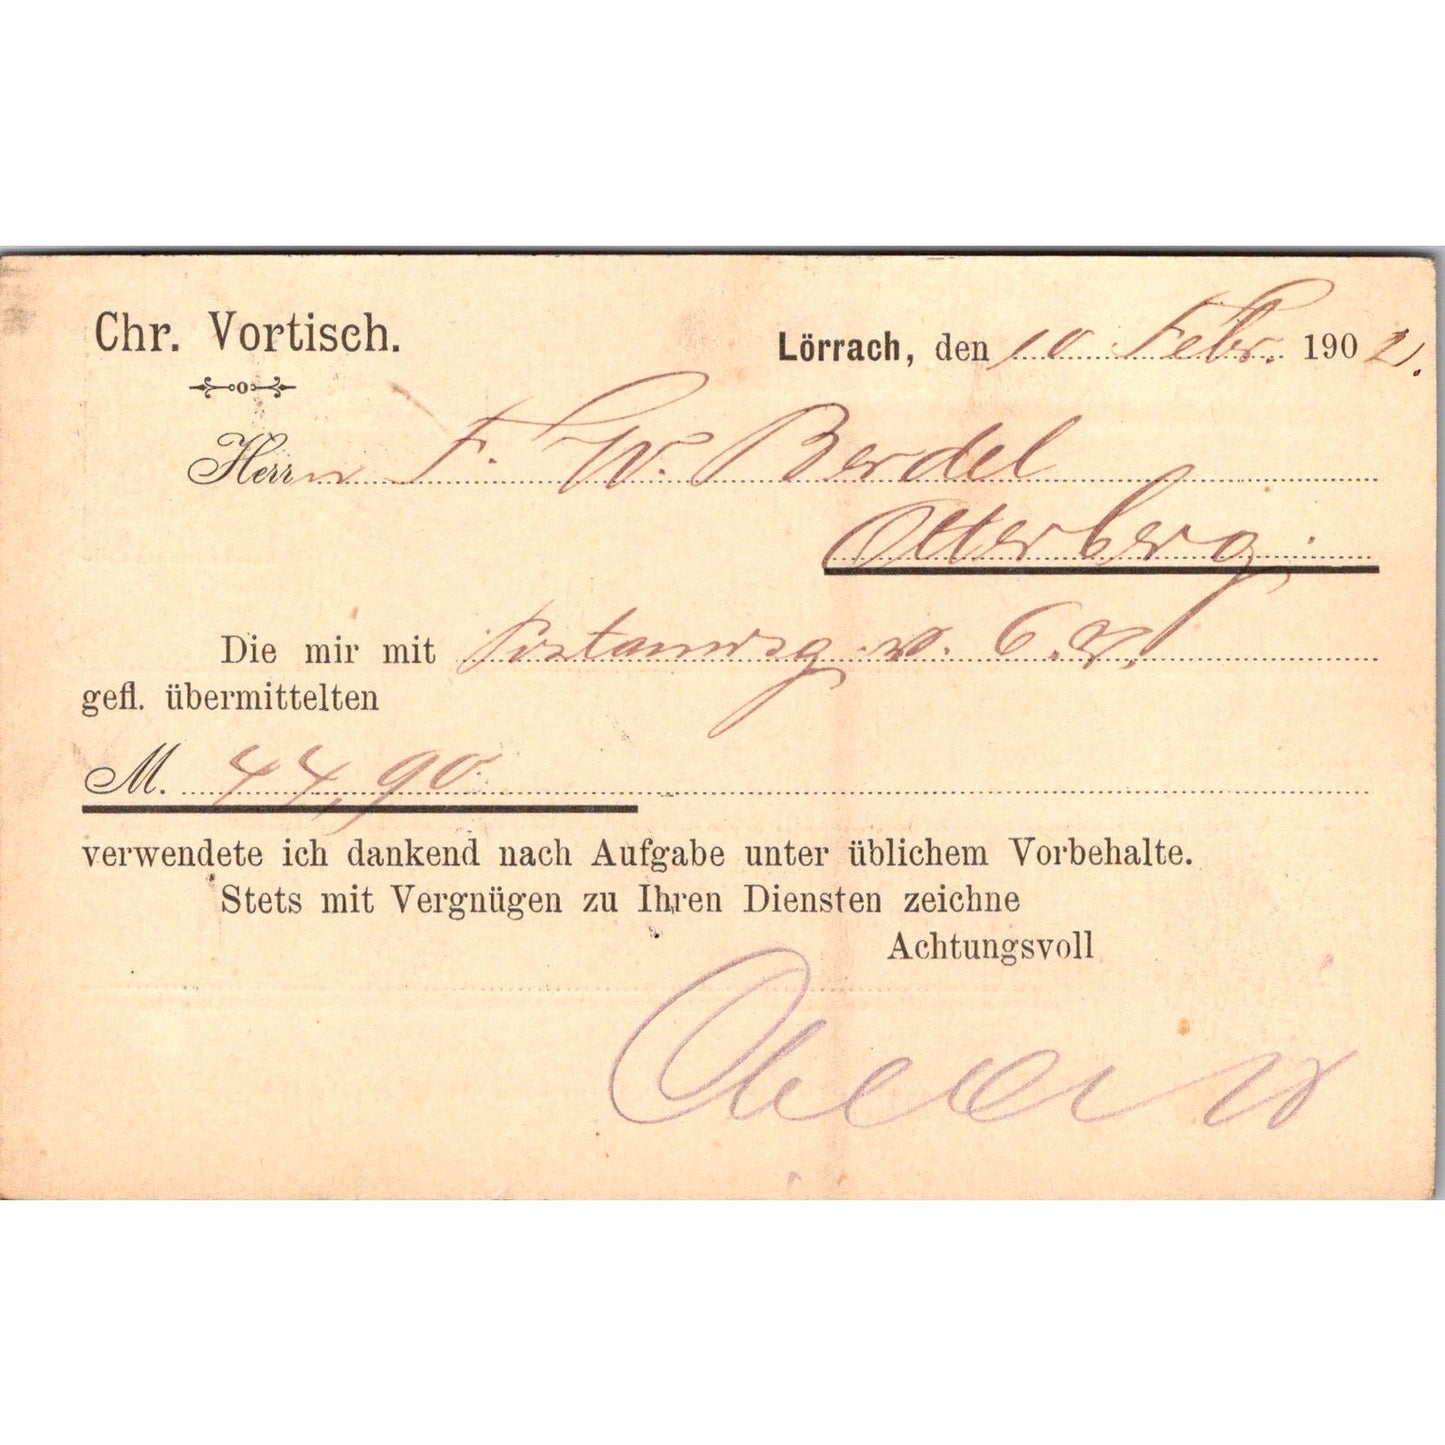 Chr. Vortisch.
Lörrach, den 10 Febr. 1902.
Herrn F. W. Berdel
Otterberg.
Die mir mit Postanwsg v. 6.
gefl. übermittelten
M. 44,90
verwendete ich dankend nach Aufgabe unter üblichem Vorbehalte.
Stets mit Vergnügen zu Ihren Diensten zeichne
Achtungsvoll